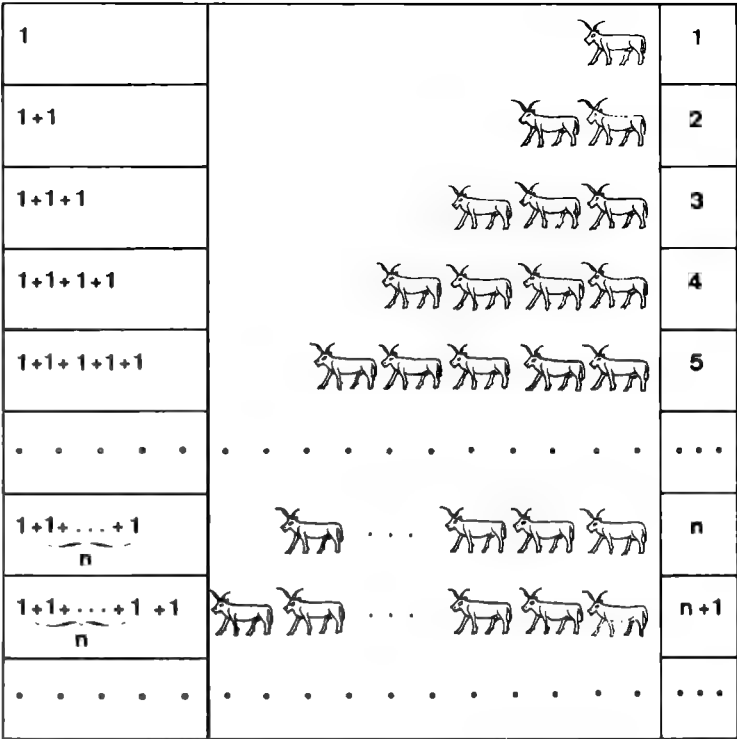 1 1
1+1 2
1+1+1 3
1+1+1+1 4
1+1+1+1+1 5
. . . . . . . . . . . . . . . . . . .
1+1+ . . . +1 . . . n
n
1+1+ . . . +1 +1 . . . n+1
n
. . . . . . . . . . . . . . . . . . .